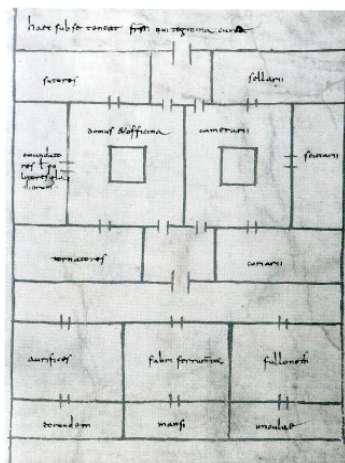 haec sub se teneat qui tegmina curat
sutores sellarii
domus & officina camerarii
emundato
res t po
litores gla
diorum
scutarii
tornatores coriarii
aurifices fabri fullones
eorundem mansi unculae